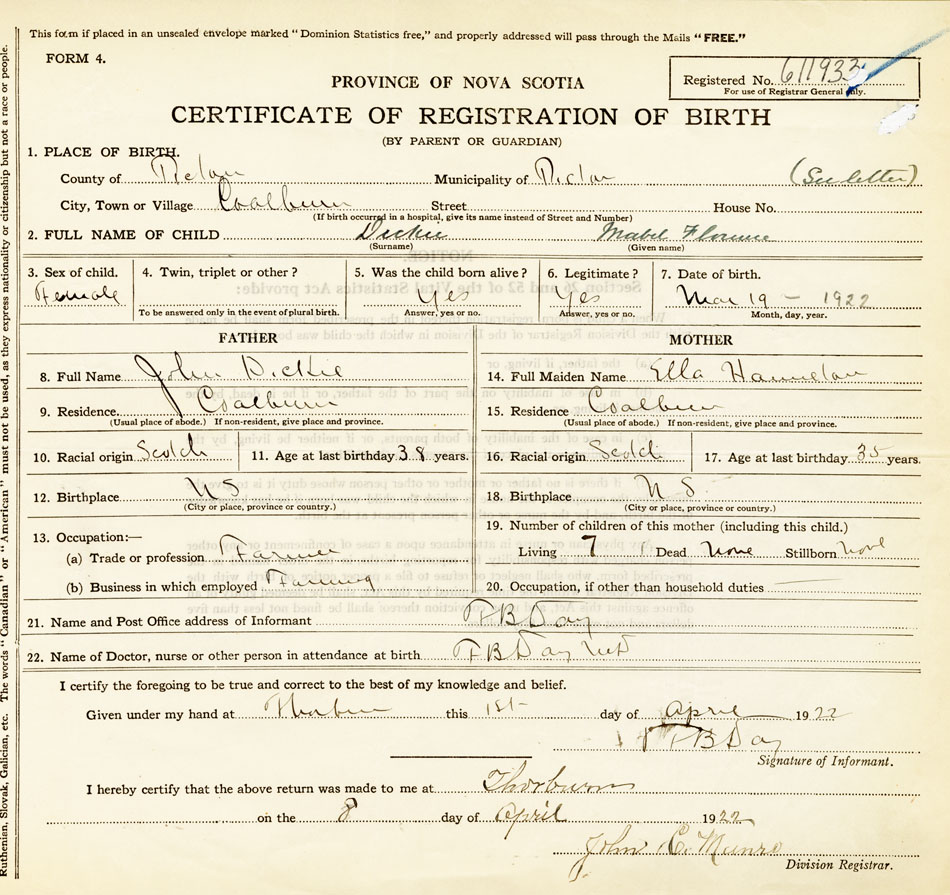 This form if placed in an unsealed envelope marked “Dominion Statistics free,” and properly addressed will pass through the Mails “FREE.”
FORM 4.
Registered No. 611933
For use of Registrar General only.
PROVINCE OF NOVA SCOTIA
CERTIFICATE OF REGISTRATION OF BIRTH
(BY PARENT OR GUARDIAN)
1. PLACE OF BIRTH.
County of Pictou Municipality of Pictou (See letter)
City, Town or Village Coalburn Street House No.
(If birth occurred in a hospital, give its name instead of Street and Number)
2. FULL NAME OF CHILD Dickie Mabel Florence
(Surname) (Given name)
3. Sex of child. 4. Twin, triplet or other? 5. Was the child born alive? 6. Legitimate? 7. Date of birth.
Female Yes Yes Mar 19 - 1922
To be answered only in the event of plural birth. Answer, yes or no. Answer, yes or no. Month, day, year.
FATHER
8. Full Name John Dickie
9. Residence Coalburn
(Usual place of abode.) If non-resident, give place and province.
10. Racial origin Scotch 11. Age at last birthday 38 years.
12. Birthplace N S
(City or place, province or country.)
13. Occupation:—
(a) Trade or profession Farmer
(b) Business in which employed Farming
MOTHER
14. Full Maiden Name Ella
15. Residence Coalburn
(Usual place of abode.) If non-resident, give place and province.
16. Racial origin Scotch 17. Age at last birthday 35 years.
18. Birthplace N S
(City or place, province or country.)
19. Number of children of this mother (including this child.)
Living 7 Dead None Stillborn None
20. Occupation, if other than household duties
21. Name and Post Office address of Informant F B Day
22. Name of Doctor, nurse or other person in attendance at birth. F B Day M D
I certify the foregoing to be true and correct to the best of my knowledge and belief.
Given under my hand at Thorburn this 1st day of April 1922
F B Day
Signature of Informant.
I hereby certify that the above return was made to me at Thorburn
on the 8 day of April 1922
John C. Munro
Division Registrar.
Ruthenian, Slovak, Galician, etc. The words “Canadian” or “American” must not be used, as they express nationality or citizenship but not a race or people.